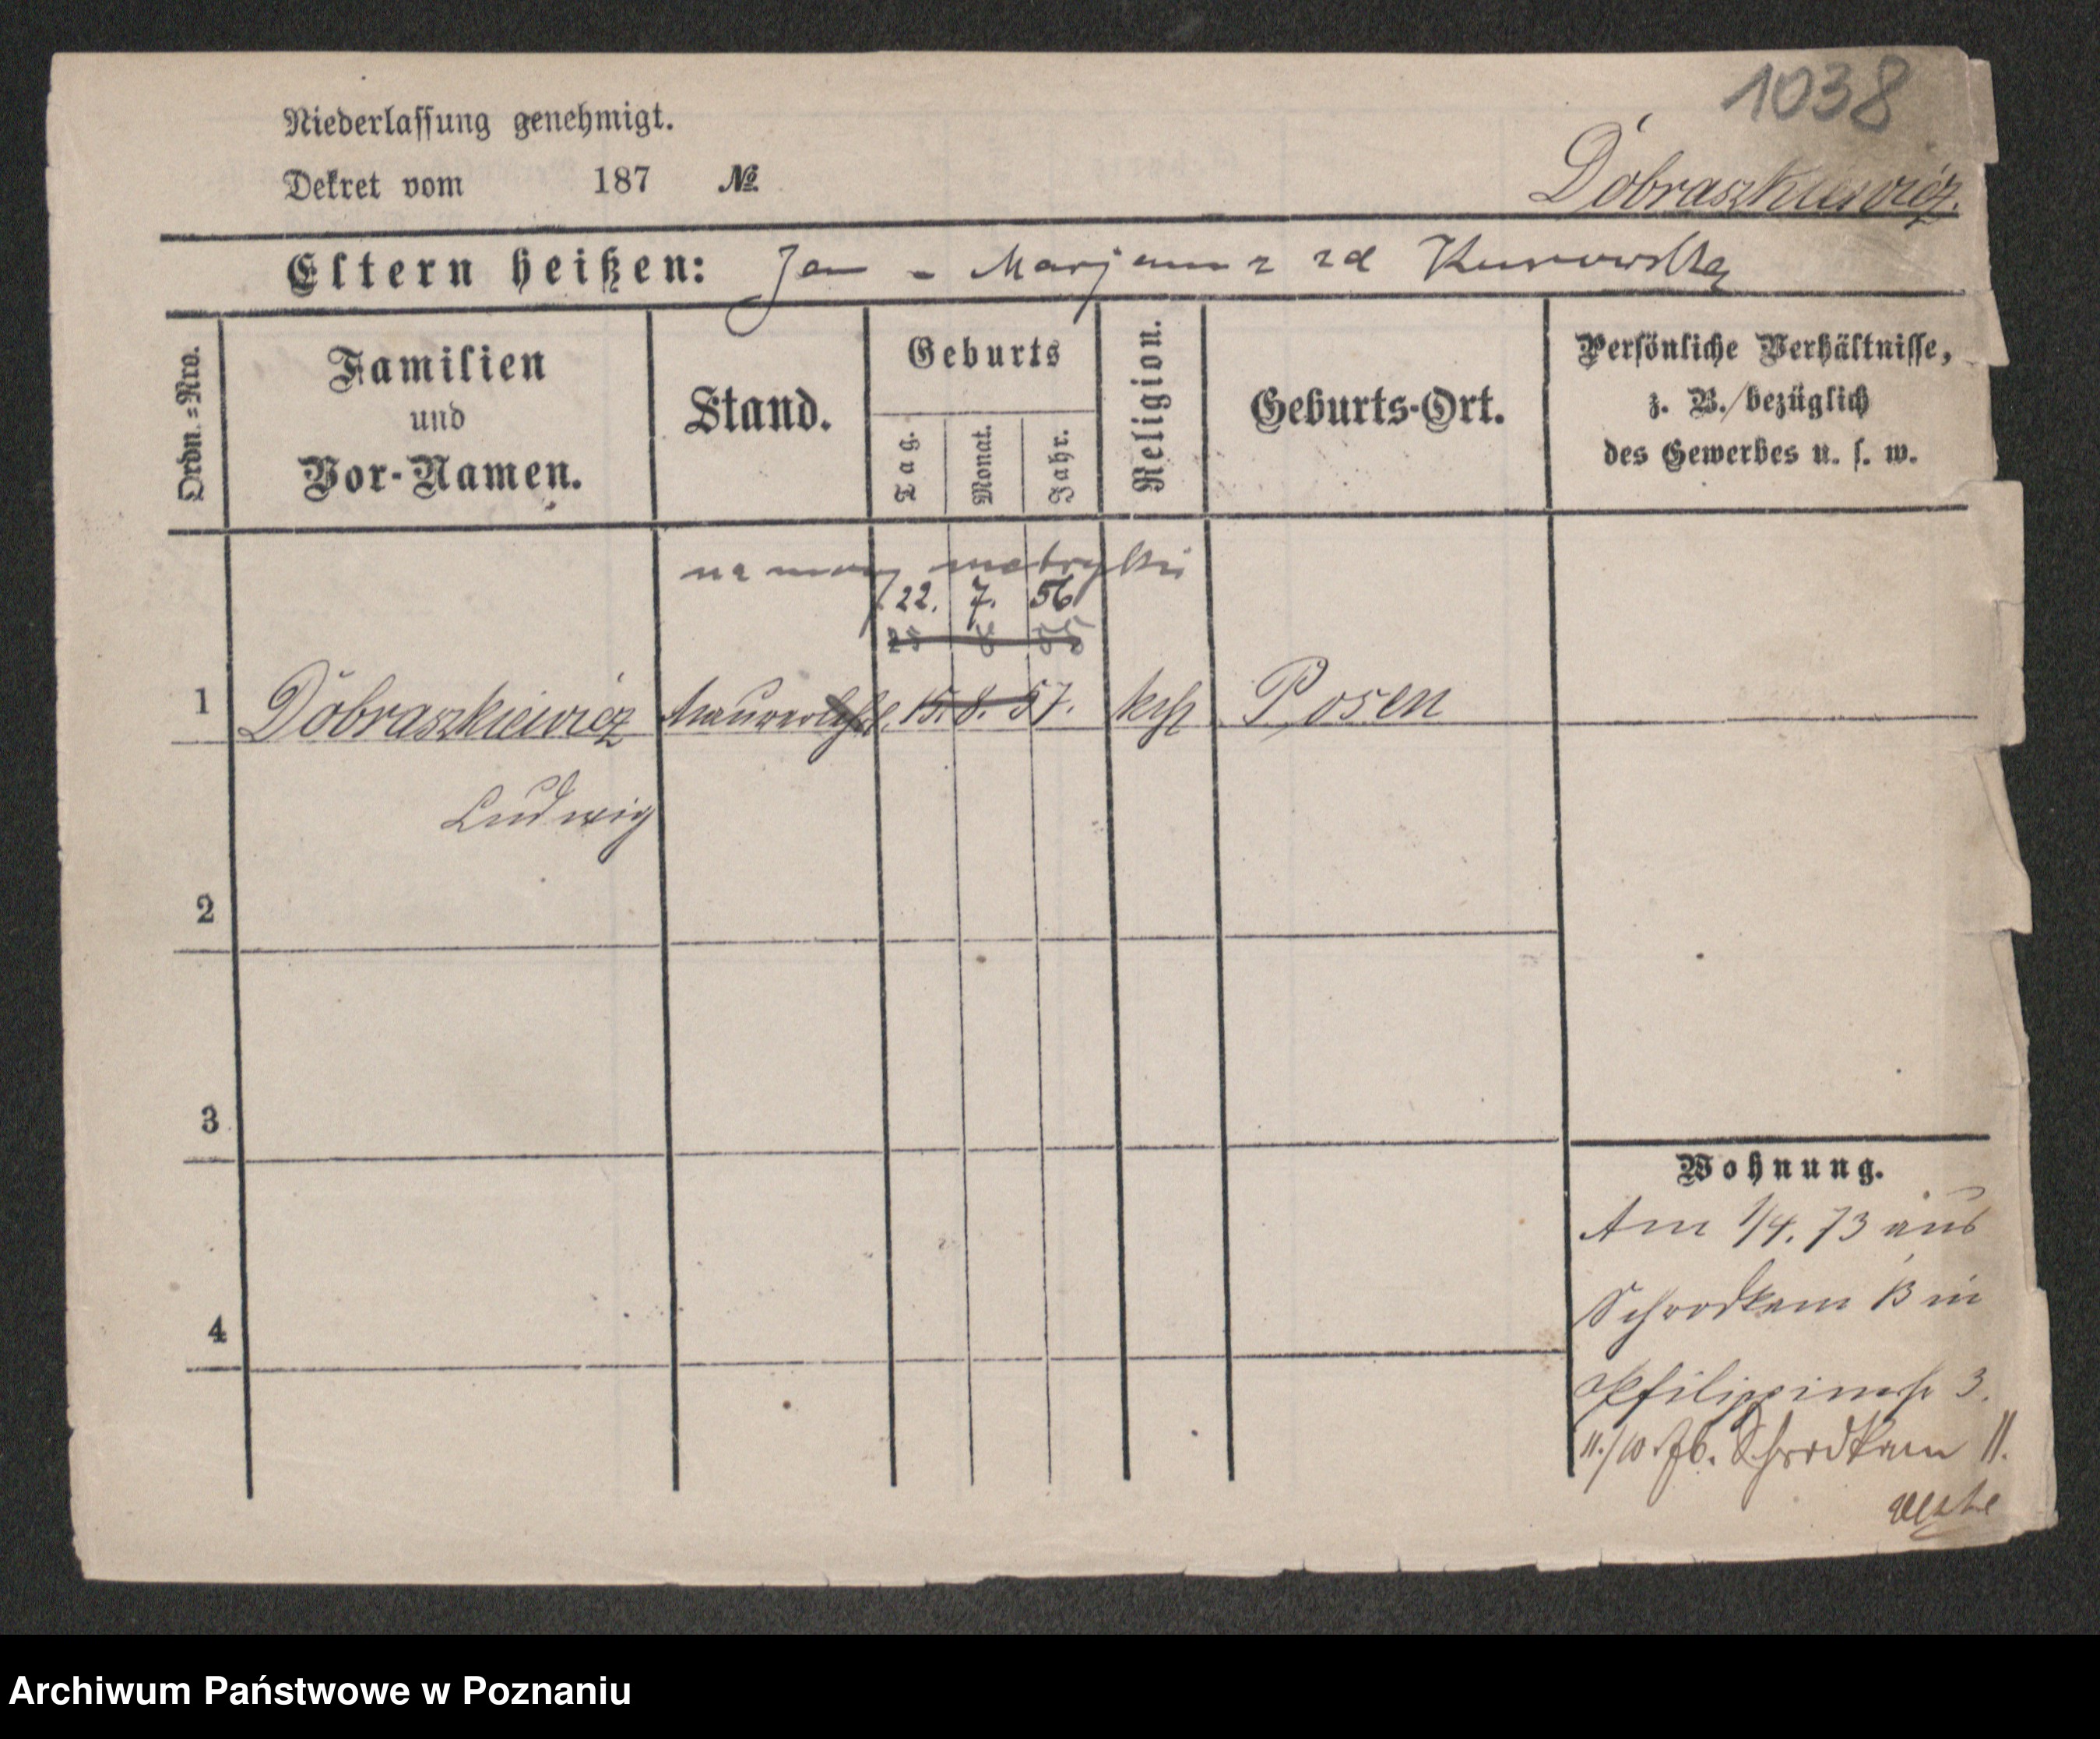 1038
Niederlassung genehmigt.
Dekret vom 187 №
Dobraszkiewicz.
Eltern heißen: Jan - Marjanna zd Kurowska
Ordn.=Nro.
Familien
und
Vor-Namen.
Stand.
Geburts
Tag.
Monat.
Jahr.
Religion.
Geburts-Ort.
Persönliche Verhältnisse,
z. B. bezüglich
des Gewerbes u. s. w.
na mocy metryki
22. 7. 56
25 8 55
1 Dobraszkiewicz 15. 8. 57. kath Posen
Ludwig
2
3
4
Wohnung.
Am 1/4. 73 aus
Schrodkam 13 in
3.
11./10 76. Schrodkam 11.
Archiwum Państwowe w Poznaniu